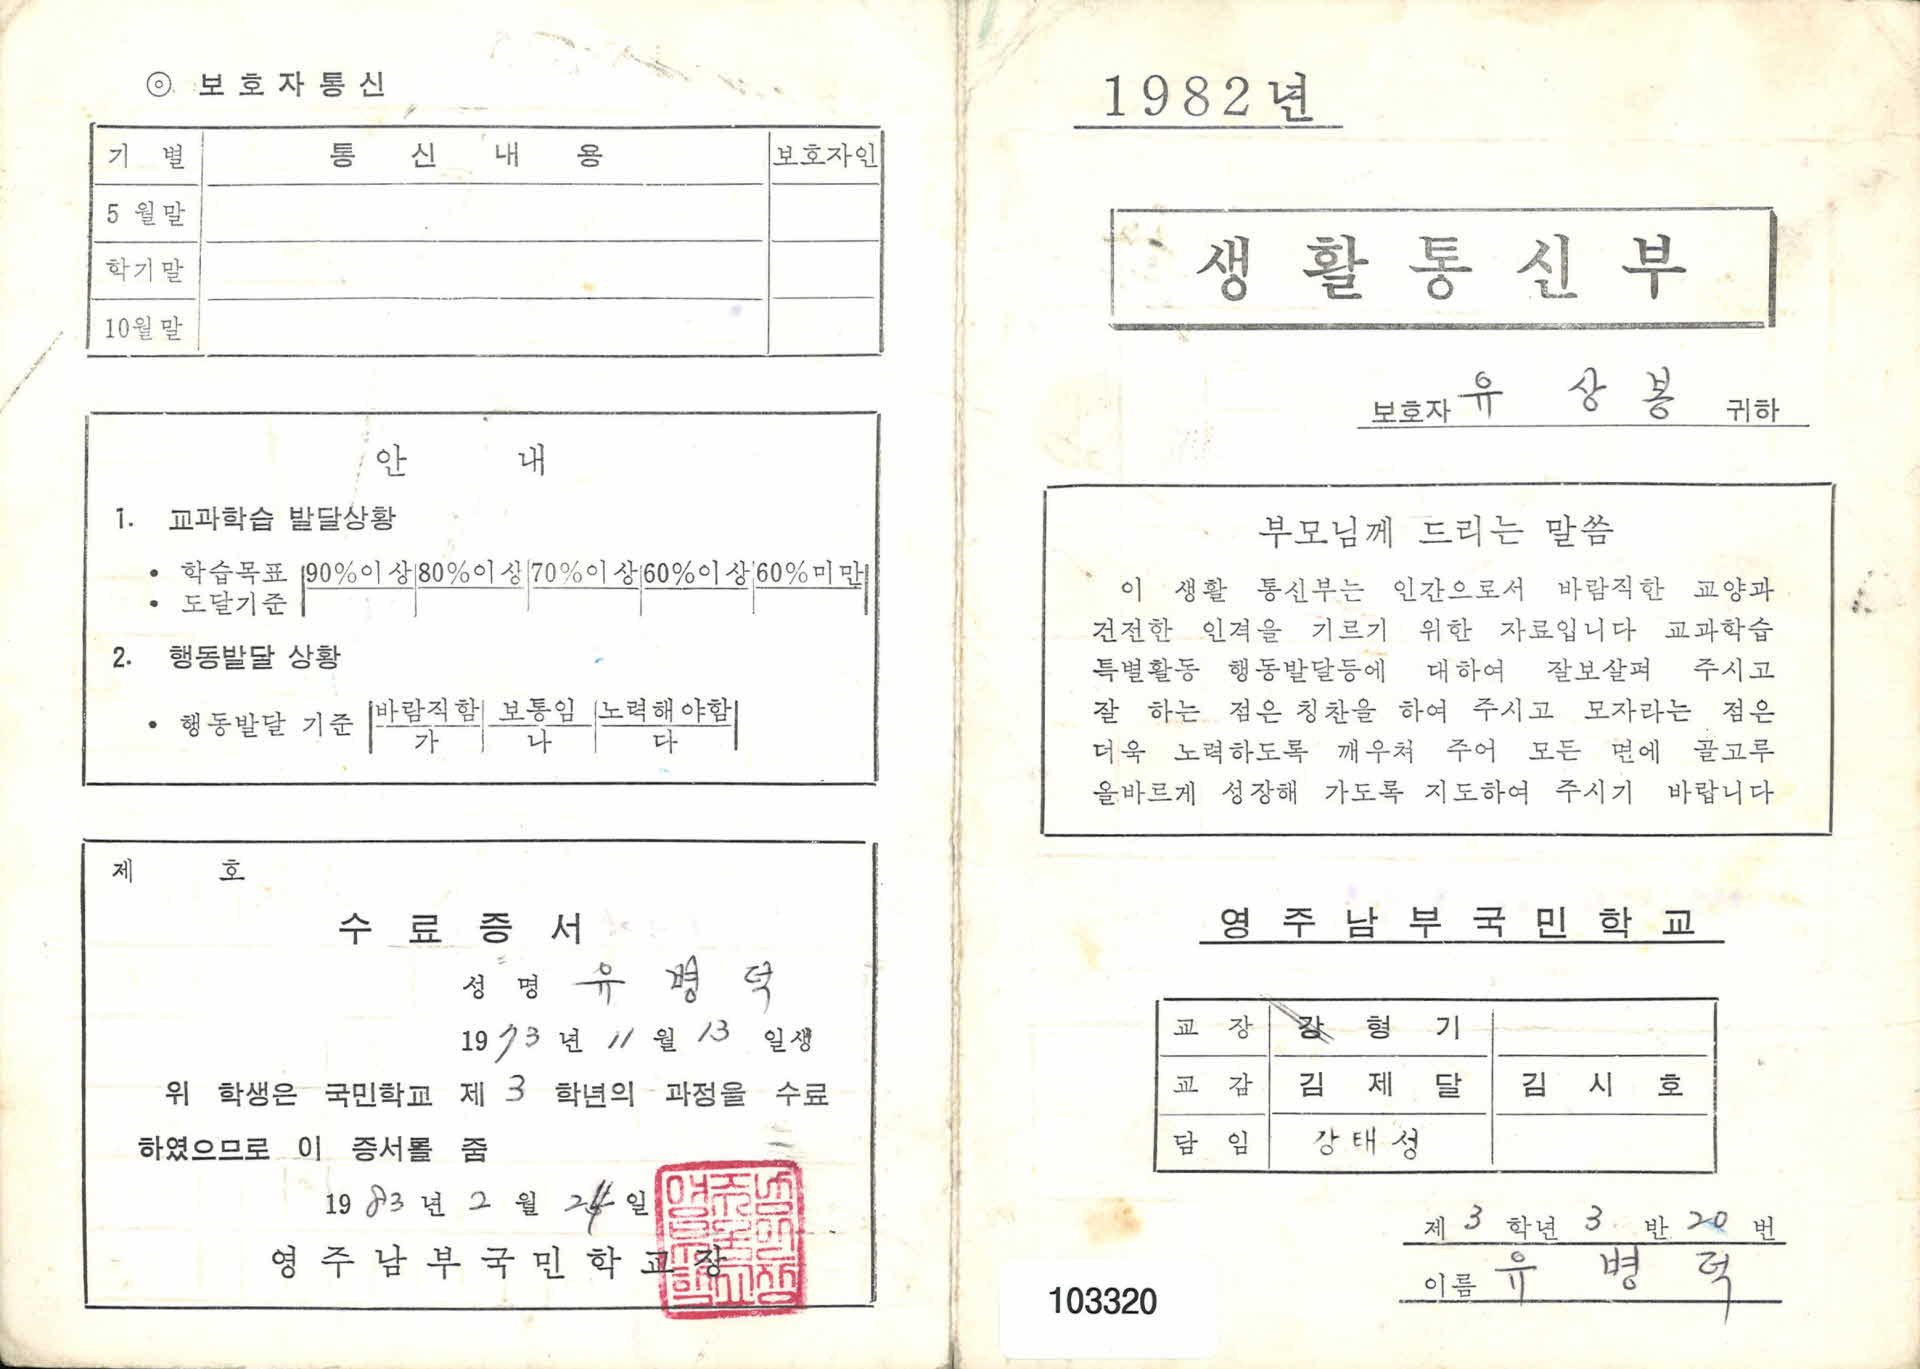 ◎ 보호자통신
기 별 통 신 내 용 보호자인
5 월말
학기말
10월말
안 내
1. 교과학습 발달상황
• 학습목표 90%이상 80%이상 70%이상 60%이상 60%미만
• 도달기준
2. 행동발달 상황
• 행동발달 기준 바람직함 보통임 노력해야함
가 나 다
제 호
수 료 증 서
성 명 유 병 덕
1973년 11월 13 일생
위 학생은 국민학교 제 3 학년의 과정을 수료
하였으므로 이 증서를 줌
1983년 2 월 24일
영주남부국민학교장
1982년
생활통신부
보호자 유 상 봉 귀하
부모님께 드리는 말씀
이 생활 통신부는 인간으로서 바람직한 교양과
건전한 인격을 기르기 위한 자료입니다 교과학습
특별활동 행동발달등에 대하여 잘보살펴 주시고
잘 하는 점은 칭찬을 하여 주시고 모자라는 점은
더욱 노력하도록 깨우쳐 주어 모든 면에 골고루
올바르게 성장해 가도록 지도하여 주시기 바랍니다
영주남부국민학교
교 장 강 형 기
교 감 김 제 달 김 시 호
담 임 강태성
제 3 학년 3 반 20 번
이름 유 병 덕
103320